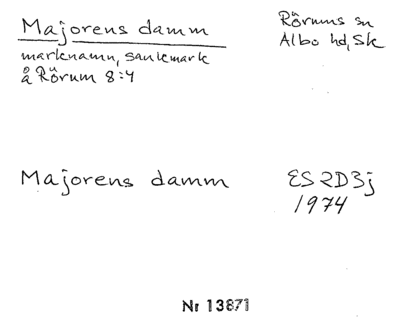 Majorens damm
Rörums sn
Albo hd, Sk
marknamn, sankmark
å Rörum 8:4
Majorens damm
ES 2D3j
1974
Nr 13871